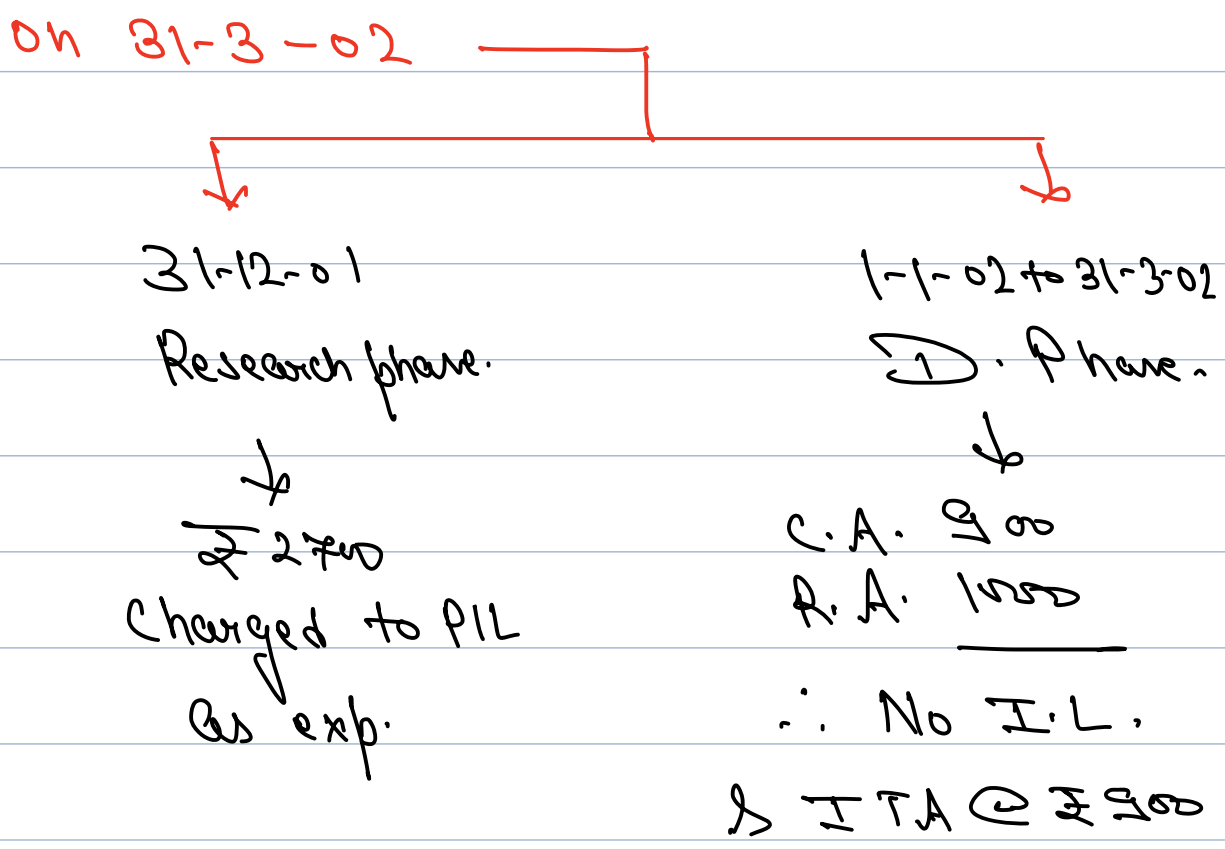 On 31-3-02
31-12-01
Research phase.
₹ 2700
Charged to P/L
as exp.
1-1-02 to 31-3-02
D. Phase.
C.A. 900
R.A. 1000
∴ No I.L.
& ITA @ ₹ 900